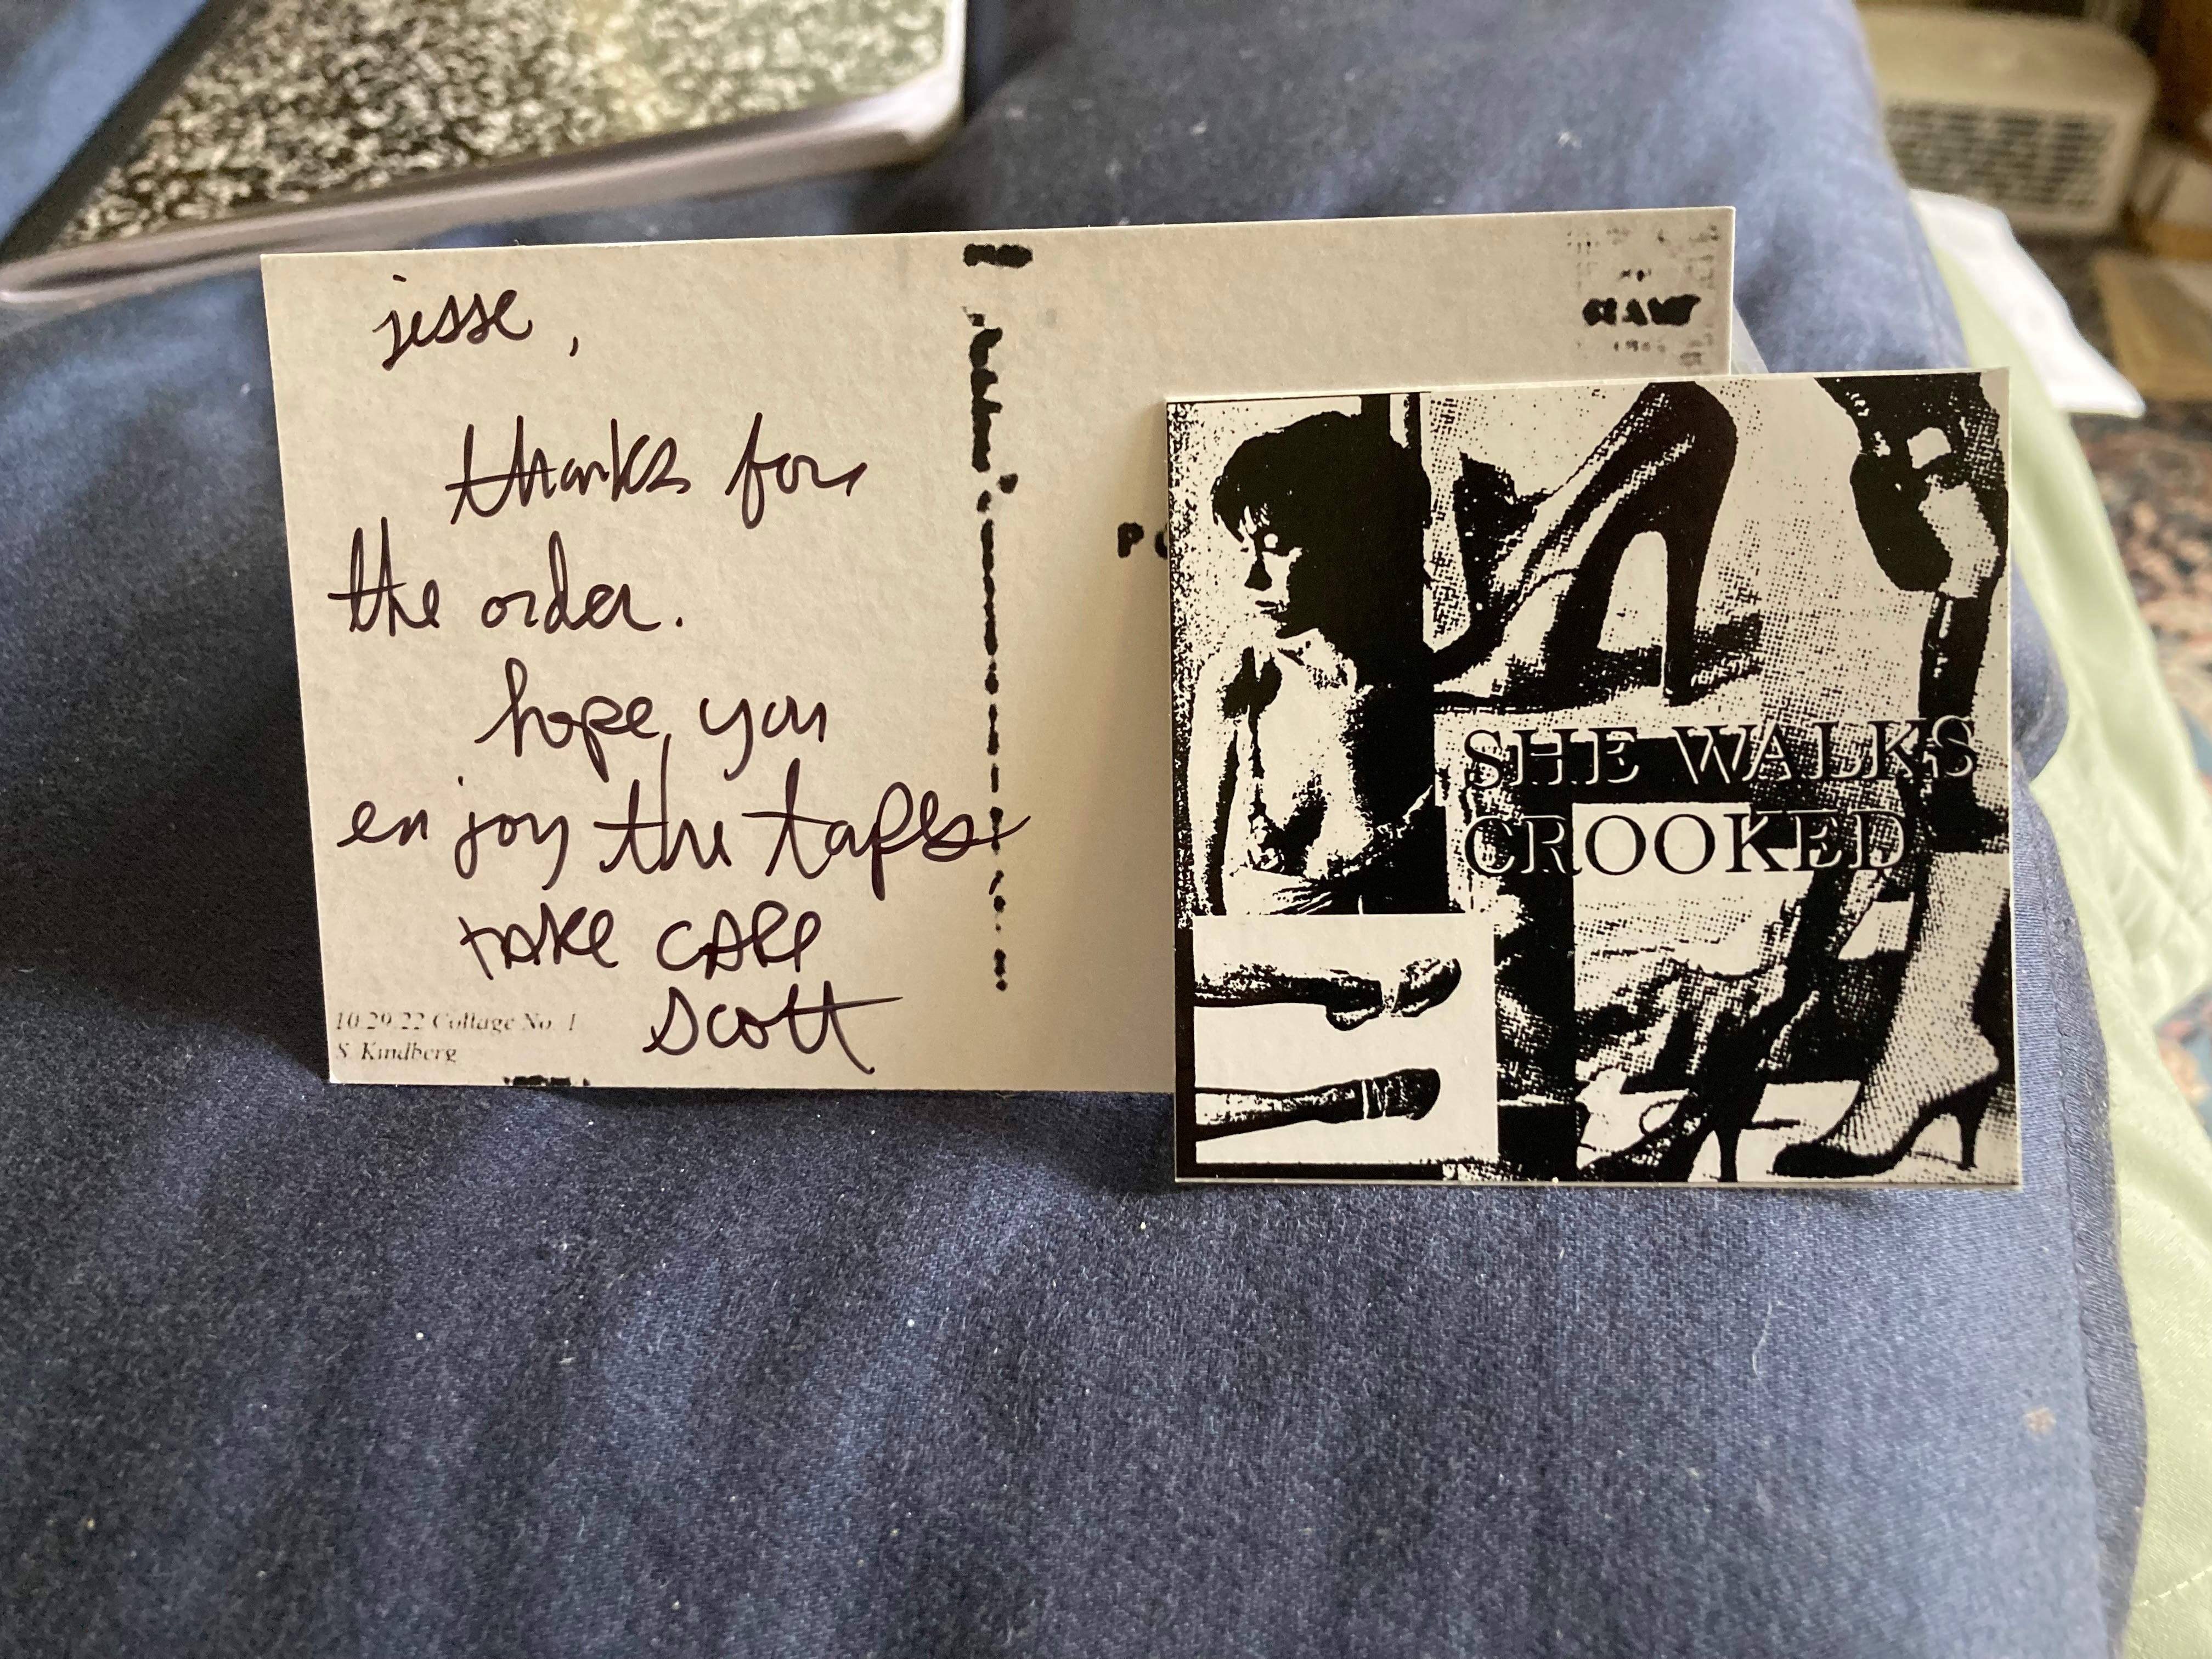 jesse,
thanks for
the order.
hope you
enjoy the tapes
take care
Scott
10.29.22 Collage No. 1
S. Kindberg
SHE WALKS
CROOKED